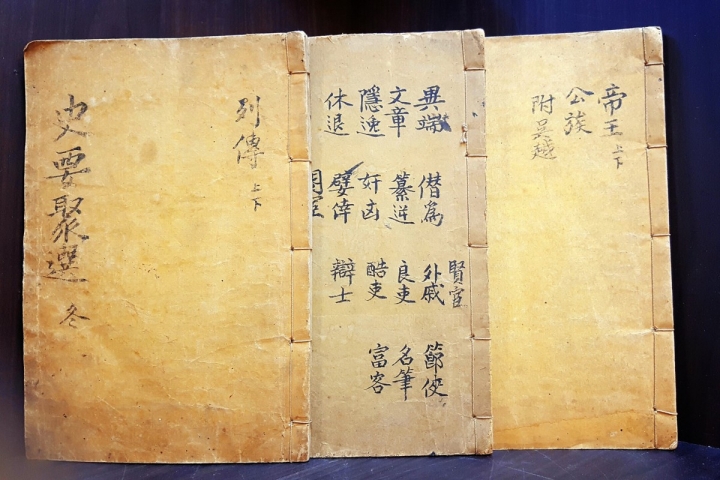 帝王 上下
公族
附吳越
賢宦
異端 僭爲 外戚 節使
文章 纂逆 良吏 名筆
隱逸 奸凶 酷吏 富客
休退 嬖倖 辯士
列傳 上下
史要聚選 冬